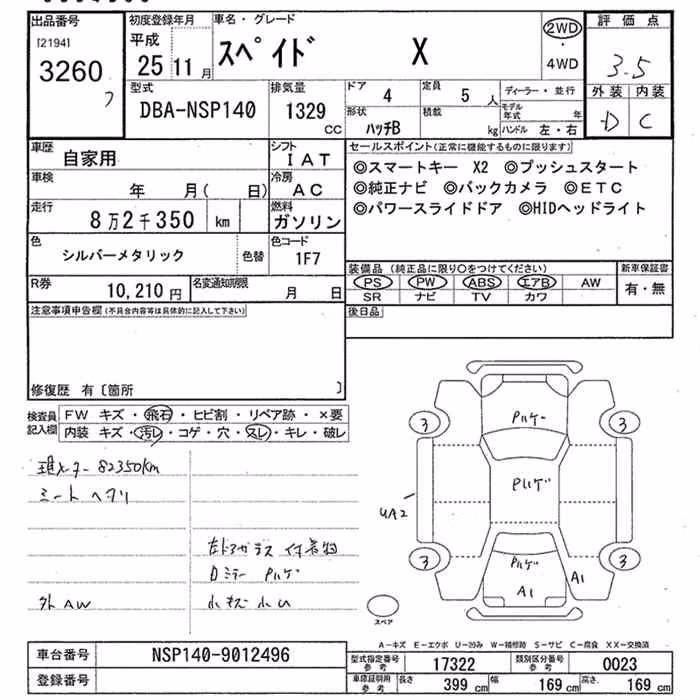 出品番号
[2194]
3260
初度登録年月
平成
25 11 月
車名・グレード
スペイド X
2WD
・
4WD
評価点
3.5
外装 内装
D C
型式
DBA-NSP140
排気量
1329
CC
ドア
4
定員
5 人
形状
ハッチB
積載
kg
ディーラー・並行
モデル年式 年
ハンドル 左・右
車歴
自家用
シフト
IAT
車検
年 月( 日)
冷房
AC
走行
8万2千350 km
燃料
ガソリン
色
シルバーメタリック
色替
色コード
1F7
R券
10,210 円
名変通知期限
月 日
セールスポイント(正常に機能するものに限ります)
◎スマートキー X2 ◎プッシュスタート
◎純正ナビ ◎バックカメラ ◎ETC
◎パワースライドドア ◎HIDヘッドライト
装備品(純正品に限り○をつけてください)
新車保証書
PS PW ABS エアB AW
SR ナビ TV カワ
有・無
後日品
注意事項申告欄(不具合内容等は具体的に記入して下さい)
修復歴 有〔箇所 〕
検査員
記入欄
FW キズ・飛石・ヒビ割・リペア跡・×要
内装 キズ・汚レ・コゲ・穴・スレ・キレ・破レ
メーター 82350km
シート ヘタリ
左ドアガラス 付着物
ミラー Pハゲ
外AW
小キズ 小U
3
3
3
3
Pハゲ
Pハゲ
Pハゲ
A1
A1
UA2
スペア
A-キズ E-エクボ U-凹み W-補修跡 S-サビ C-腐食 XX-交換済
車台番号
NSP140-9012496
登録番号
型式指定番号
参考
17322
類別区分番号
参考
0023
車庫証明用
参考
長さ 399 cm
幅 169 cm
高さ 169 cm